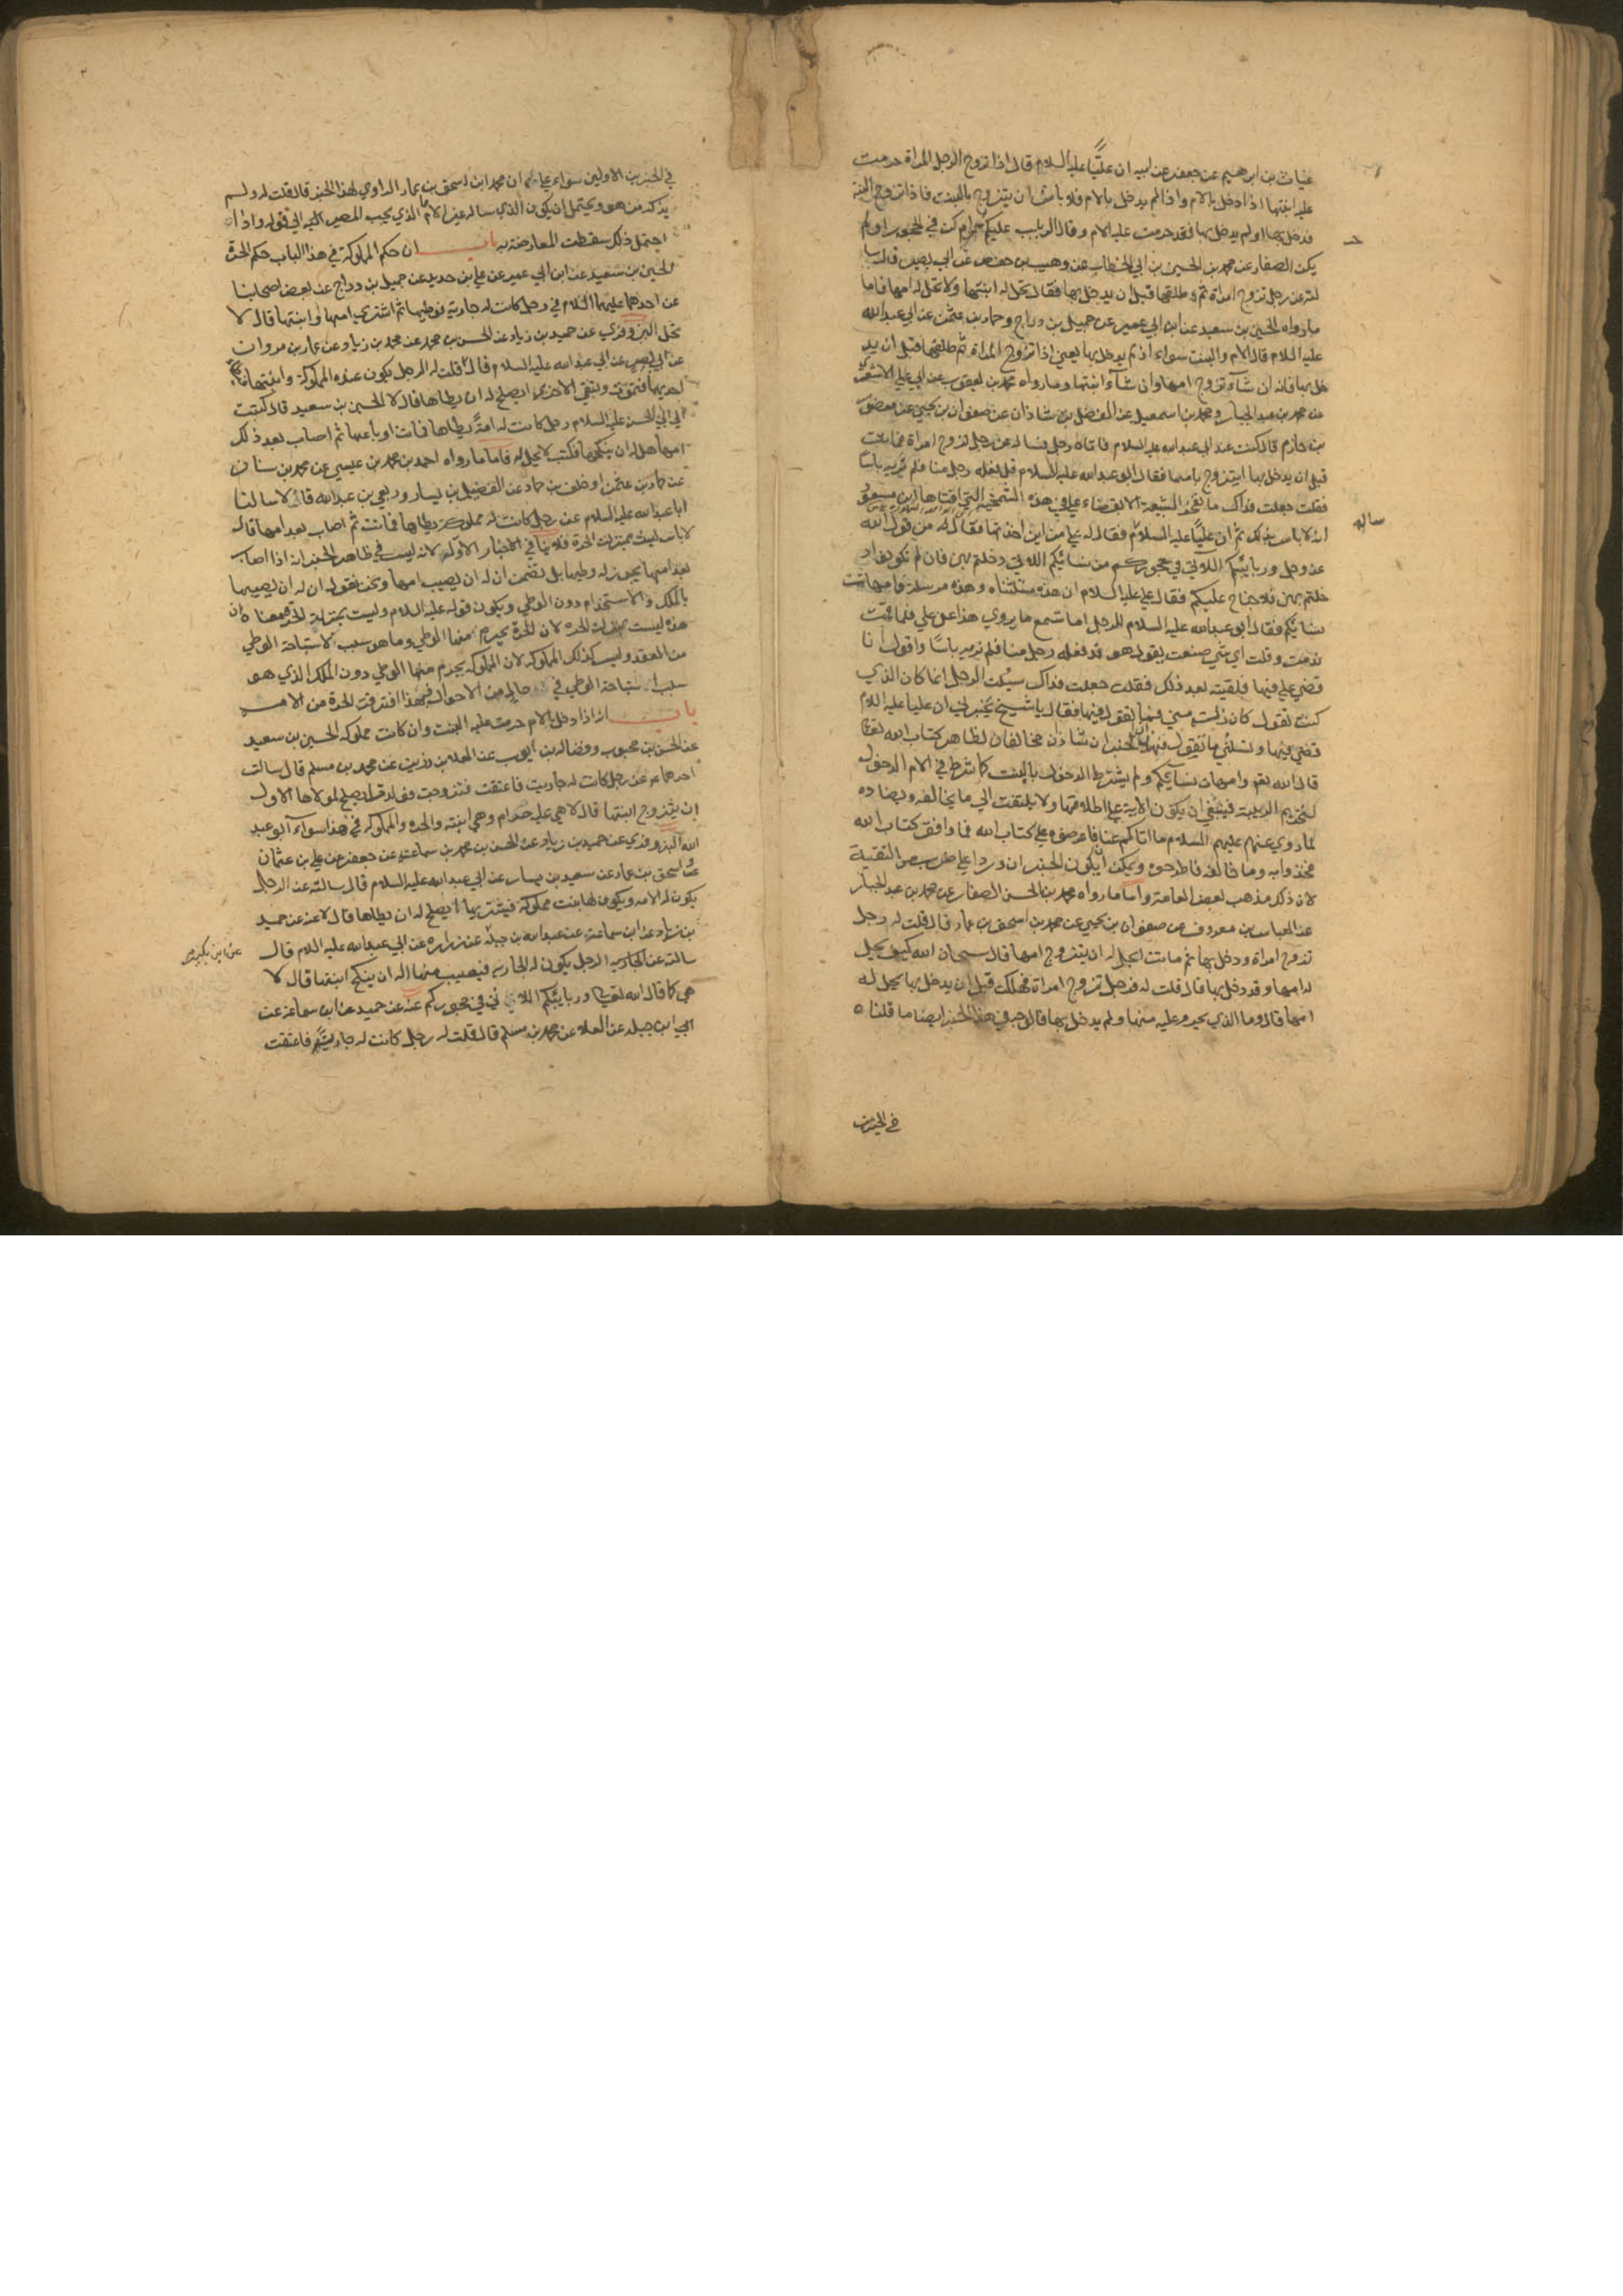 غياث بن ابرهيم عن جعفر عن ابيه ان عليًّا عليه السلام قال اذا تزوج الرجل المراة حرمت
عليه ابنتها اذا دخل بالام واذا لم يدخل بالام فلا باس ان يتزوج بالبنت فاذا تزوج البنة
فدخل بها او لم يدخل بها فقد حرمت عليه الام وقال الربايب عليكم حرام كن في الحجور او لم
يكن الصفار عن محمد بن الحسين بن ابي الخطاب عن وهيب بن حفص عن ابي بصير قال سا
لته عن رجل تزوج امراة ثم طلقها قبل ان يدخل بها فقال تحل له ابنتها ولا تحل له امها فاما
مارواه الحسين بن سعيد عن ابن ابي عمير عن جميل بن دراج وحماد بن عثمن عن ابي عبد الله
عليه السلام قال الام والبنت سواء اذ لم يدخل بها يعني اذا تزوج المراة ثم طلقها قبل ان يد
خل بها فانه ان شآء تزوج امها وان شآء ابنتها وما رواه محمد بن يعقوب عن ابي علي الاشعري
عن محمد بن عبد الجبار ومحمد بن اسمعيل عن الفضل بن شاذان عن صفوان بن يحيي عن منصور
بن حازم قال كنت عند ابي عبد الله عليه السلام فاتاه رجل فساله عن رجل تزوج امراة فماتت
قبل ان يدخل بها ايتزوج بامها فقال ابو عبد الله عليه السلام قد فعله رجل منا فلم نر به باسًا
فقلت جعلت فداك ما تفخر الشيعة الا بقضاء علي في هذه الشمخية التي افتاها ابن مسعود
انه لا باس بذلك ثم ان عليًّا عليه السلام فقال له علي من اين اخذتها فقال له من قول الله
ساله
عز وجل وربايبكم اللاتي في حجوركم من نسائكم اللاتي دخلتم بهن فان لم تكونوا د
خلتم بهن فلا جناح عليكم فقال علي عليه السلام ان هذه مستثناه وهذه مرسلة وامهات
نسائكم فقال ابو عبد الله عليه السلام للرجل اما تسمع ما يروي هذا عن علي فلما قمت
ندمت وقلت اي شي صنعت يقول هو قد فعله رجل منا فلم نر به باسًا واقول انا
قضي علي فيها فلقيته بعد ذلك فقلت جعلت فداك مسئلت الرجل انما كان الذي
كنت تقول كان زلت مني فما تقول فيها فقال يا شيخ تخبرني ان عليا عليه السلام
قضي فيها وتسئلني ما تقول فيها الخبران شاذان مخالفان لظاهر كتاب الله تعالى
قال الله تعم وامهات نسائكم ولم يشترط الدخول بالبنت كما شرط في الام الدخول
لتحريم الربيبة فينبغي ان يكون الاية علي اطلاقها ولا يلتفت الي ما يخالفه ويضاده
لما روي عنهم عليهم السلام ما اتاكم عنا فاعرضوه علي كتاب الله فما وافق كتاب الله
فخذوا به وما خالفه فاطرحوه ويمكن ان يكون الخبران وردا علي ضرب من التقية
لان ذلك مذهب لبعض العامة واما ما رواه محمد بن الحسن الصفار عن محمد بن عبد الجبار
عن العباس بن معروف عن صفوان بن يحيي عن محمد بن اسحق بن عمار قال قلت له رجل
تزوج امراة ودخل بها ثم ماتت ايحل له ان يتزوج امها قال سبحان الله كيف يحل
له امها وقد دخل بها قال قلت له فرجل تزوج امراة فهلكت قبل ان يدخل بها يحل له
امها قال وما الذي يحرم عليه منها ولم يدخل بها فالوجه في هذا الخبر ايضا ما قلناه
في الخبرين
في الخبرين الاولين سواء علي ان محمد ابن اسحق بن عمار الراوي لهذا الخبر قال قلت له ولم
يذكر من هو ويحتمل ان يكون الذي ساله غير الامام الذي يجب المصير اليه الي قوله واذا
احتمل ذلك سقطت المعارضة به باب ان حكم المملوكة في هذا الباب حكم الحرة
الحسين بن سعيد عن ابن ابي عمير عن علي بن حديد عن جميل بن دراج عن بعض اصحابنا
عن احدهما عليهما السلام في رجل كانت له جارية فوطيها ثم اشتري امها او ابنتها قال لا
تحل البزوفري عن حميد بن زياد عن الحسن بن محمد عن محمد بن زياد عن عمار بن مروان
عن ابي بصير عن ابي عبد الله عليه السلام قال قلت له الرجل يكون عنده المملوكة وابنتها
احديهما فتموت وتبقي الاخري ايصلح له ان يطاها قال لا الحسين بن سعيد قال كتبت
الي ابي الحسن عليه السلام رجل كانت له امة يطاها فماتت او باعها ثم اصاب بعد ذلك
امها هل له ان ينكحها فكتب لا تحل له فاما ما رواه احمد بن محمد بن عيسي عن محمد بن سنان
عن حماد بن عثمن او خلف بن حماد عن الفضيل بن يسار وربعي بن عبد الله قالا سالنا
ابا عبد الله عليه السلام عن رجل كانت له مملوكة يطاها فماتت ثم اصاب بعد امها قال
لا باس ليست بمنزلت الحرة فلا ينافي الاخبار الاولة لانه ليس في ظاهر الخبر انه اذا اصاب
بعد امها يجوز له وطيها بل تضمن ان له ان يصيب امها ونحن نقول ان له ان يصيبها
بالملك والاستخدام دون الوطي ويكون قوله عليه السلام وليست بمنزلة الحرة معناه ان
هذه ليست بمنزلت الحره لان الحرة يحرم منها الوطي وما هو سبب لاستباحة الوطي
من العقد وليس كذلك المملوكه لان المملوكه يحرم منها الوطي دون الملك الذي هو
سبب استباحة الوطي في حال من الاحوال فبهذا افترقت الحرة من الامه
باب انه اذا دخل بالام حرمت عليه البنت وان كانت مملوكه الحسين بن سعيد
عن الحسن بن محبوب وفضاله بن ايوب عن العلا بن رزين عن محمد بن مسلم قال سالت
احدهما ع عن رجل كانت له جاريت فاعتقت فتزوجت فولدت ايصلح لمولاها الاول
ان يتزوج ابنتها قال لا هي عليه حرام وهي ابنته والحره والمملوكه في هذا سواء ابو عبد
الله البزوفري عن حميد بن زياد عن الحسن بن محمد بن سماعه عن جعفر عن علي بن عثمان
واسحق بن عمار عن سعيد بن يسار عن ابي عبد الله عليه السلام قال سالته عن الرجل
يكون له الامه ويكون لها بنت مملوكة فيشتريها ايصلح له ان يطاها قال لا عنه عن حميد
بن زياد عن ابن سماعة عن عبد الله بن جبلة عن زراره عن ابي عبد الله عليه السلام قال
عن ابن بكير
سالته عن الجاريه الرجل يكون له الجاريه فيصيب منها اله ان ينكح ابنتها قال لا
هي كما قال الله تعالى وربايبكم اللاتي في حجوركم عنه عن حميد عن ابن سماعة عن
ابي ابن جبله عن العلا عن محمد بن مسلم قال قلت له رجل كانت له جارية فاعتقت